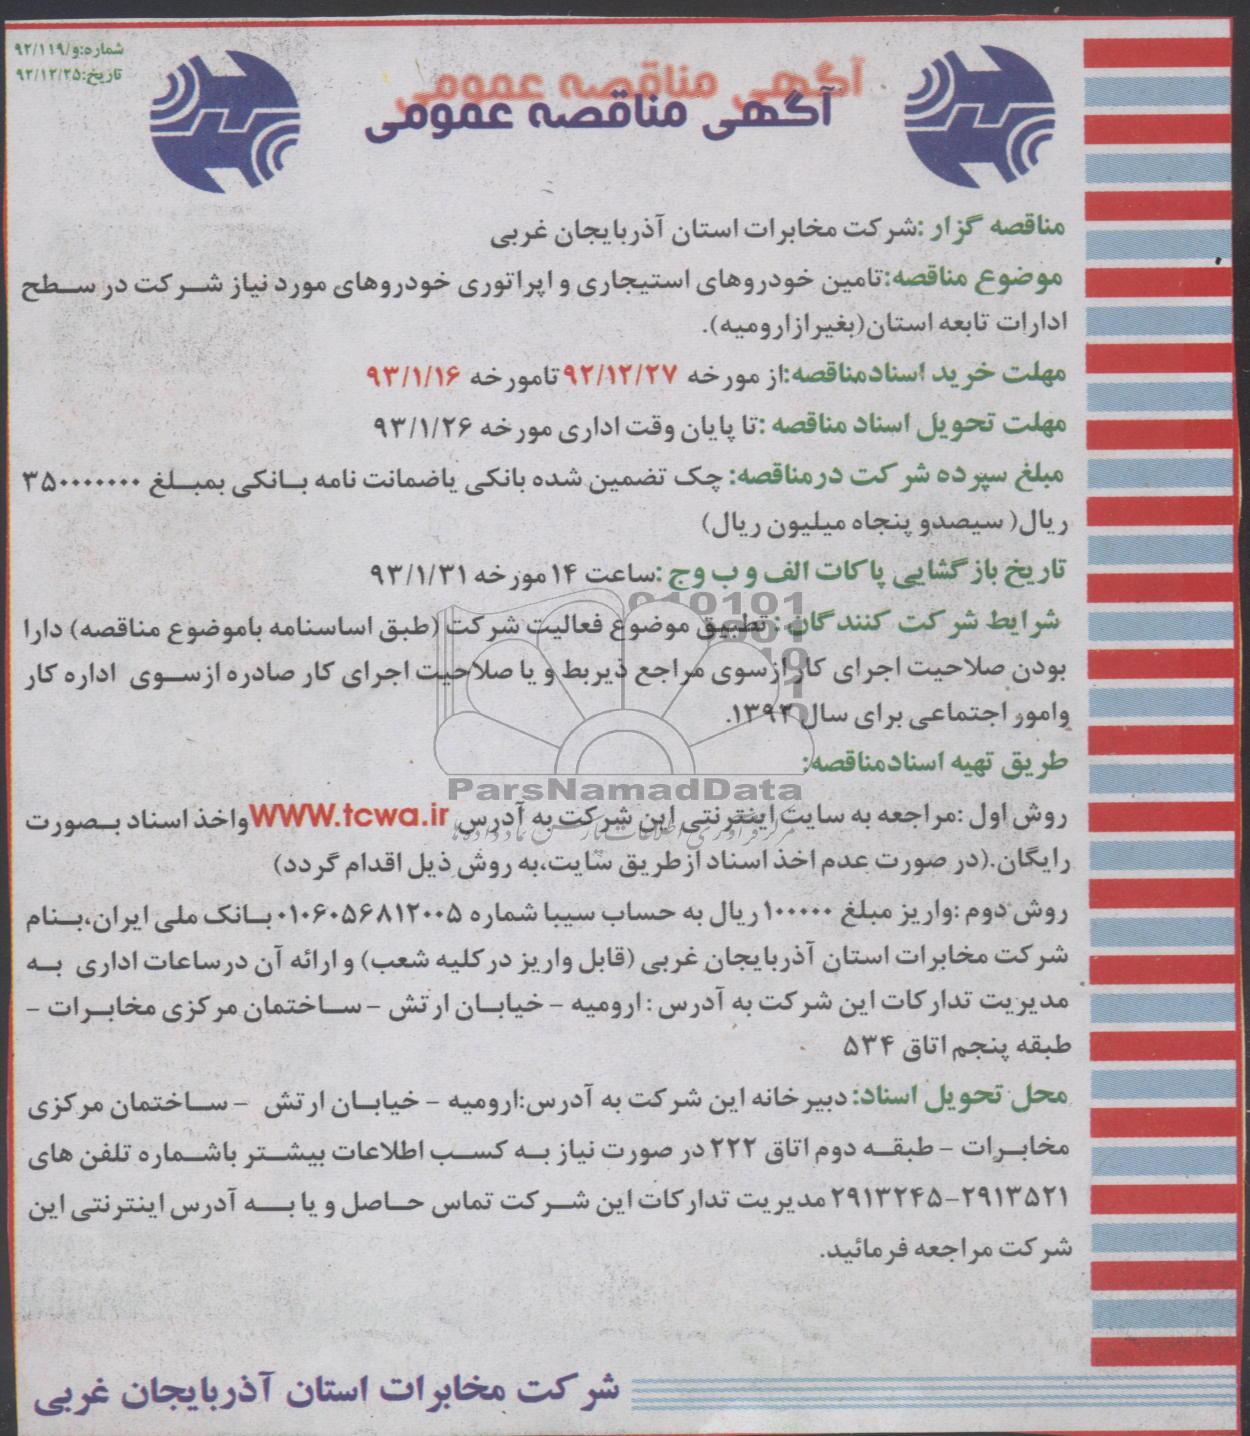 شماره:و/۹۲/۱۱۹
تاریخ:۹۲/۱۲/۲۵
آگهی مناقصه عمومی
مناقصه گزار :شرکت مخابرات استان آذربایجان غربی
موضوع مناقصه:تامین خودروهای استیجاری و اپراتوری خودروهای مورد نیاز شرکت در سطح
ادارات تابعه استان(بغیرازارومیه).
مهلت خرید اسنادمناقصه:از مورخه ۹۲/۱۲/۲۷ تامورخه ۹۳/۱/۱۶
مهلت تحویل اسناد مناقصه :تا پایان وقت اداری مورخه ۹۳/۱/۲۶
مبلغ سپرده شرکت درمناقصه: چک تضمین شده بانکی یاضمانت نامه بانکی بمبلغ ۳۵۰۰۰۰۰۰۰
ریال( سیصدو پنجاه میلیون ریال)
تاریخ بازگشایی پاکات الف و ب وج :ساعت ۱۴ مورخه ۹۳/۱/۳۱
شرایط شرکت کنندگان: تطبیق موضوع فعالیت شرکت (طبق اساسنامه باموضوع مناقصه) دارا
بودن صلاحیت اجرای کار ازسوی مراجع ذیربط و یا صلاحیت اجرای کار صادره ازسوی اداره کار
وامور اجتماعی برای سال ۱۳۹۲.
طریق تهیه اسنادمناقصه:
ParsNamadData
روش اول :مراجعه به سایت اینترنتی این شرکت به آدرس WWW.tcwa.ir واخذ اسناد بصورت
مرکز فرآوری اطلاعات پارس نماد داده‌ها
رایگان.(در صورت عدم اخذ اسناد ازطریق سایت،به روش ذیل اقدام گردد)
روش دوم :واریز مبلغ ۱۰۰۰۰۰ ریال به حساب سیبا شماره ۰۱۰۶۰۵۶۸۱۲۰۰۵ بانک ملی ایران،بنام
شرکت مخابرات استان آذربایجان غربی (قابل واریز درکلیه شعب) و ارائه آن درساعات اداری به
مدیریت تدارکات این شرکت به آدرس : ارومیه – خیابان ارتش – ساختمان مرکزی مخابرات –
طبقه پنجم اتاق ۵۳۴
محل تحویل اسناد: دبیرخانه این شرکت به آدرس:ارومیه – خیابان ارتش – ساختمان مرکزی
مخابرات – طبقه دوم اتاق ۲۲۲ در صورت نیاز به کسب اطلاعات بیشتر باشماره تلفن های
۲۹۱۳۵۲۱–۲۹۱۳۲۴۵ مدیریت تدارکات این شرکت تماس حاصل و یا به آدرس اینترنتی این
شرکت مراجعه فرمائید.
شرکت مخابرات استان آذربایجان غربی